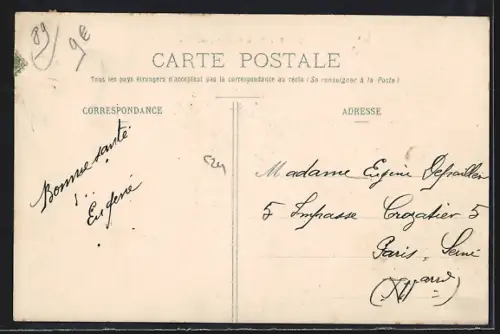 89
9€
CARTE POSTALE
Tous les pays étrangers n'acceptent pas la correspondance au recto (Se renseigner à la Poste)
CORRESPONDANCE
ADRESSE
Bonne santé
Eugène
524
Madame Eugène
5 Impasse Crozatier 5
Paris. Seine
(XII arrd)